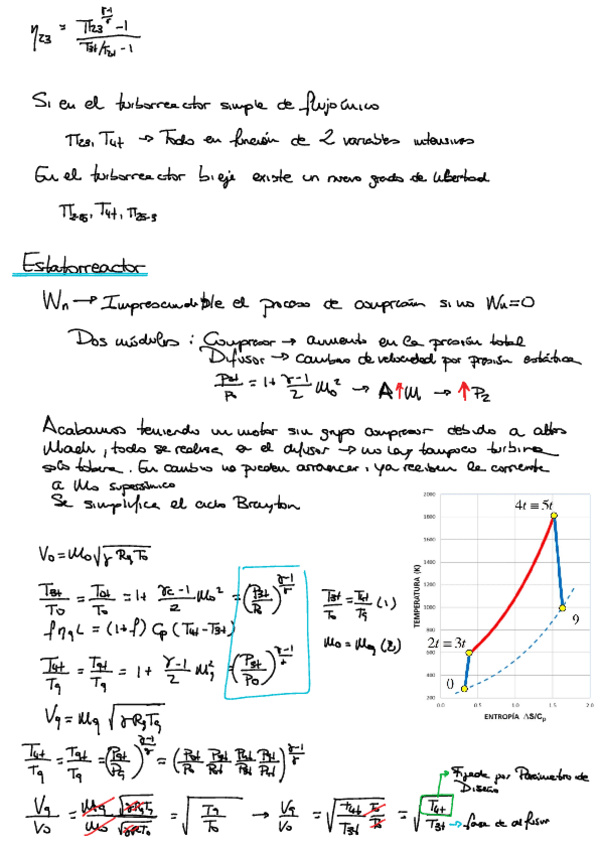 η23 = (Π23^(γ-1/γ) - 1) / (T3t/T2t - 1)
Si en el turborreactor simple de flujo único
Π23, T4t → Todo en función de 2 variables intensivas
En el turborreactor bieje existe un nuevo grado de libertad
T4t, Π25-3
Estatorreactor
Wn → Imprescindible el proceso de compresión si no Wn=0
Dos módulos: Compresor → aumento en la presión total
Difusor → cambio de velocidad por presión estática
= 1 + (γ-1)/2 M0² → A ↑ M → ↑ P2
Acabamos teniendo un motor sin grupo compresor debido a altos
Mach, todo se realiza en el difusor → no hay tampoco turbina
solo tobera. En cambio no pueden arrancar, ya reciben la corriente
a M0 supersónico
Se simplifica el ciclo Brayton
V0 = M0 √(γ Rg T0)
T3t/T0 = T0t/T0 = 1 + (γc-1)/2 M0² = (P3t/P0)^(γ-1/γ)
T3t/T0 = T4t/T9 (1)
f ηq L = (1+f) Cp (T4t - T3t)
M0 = M9 (2)
T4t/T9 = T9t/T9 = 1 + (γ-1)/2 M9² = (P5t/P0)^(γ-1/γ)
V9 = M9 √(γ Rg T9)
T4t/T9 = T9t/T9 = (P9t/P9)^(γ-1/γ)
V9/V0 = M9 √(γRgT9) / M0 √(γRgT0) = √(T9/T0) → V9/V0 = √(T4t/T3t T0/T0) = √(T4t/T3t)
Fijado por Parámetro de
Diseño
fase de difusor
TEMPERATURA (K)
2000
1800
1600
1400
1200
1000
800
600
400
200
0.0 0.5 1.0 1.5 2.0
ENTROPÍA ΔS/Cp
4t ≡ 5t
9
2t ≡ 3t
0